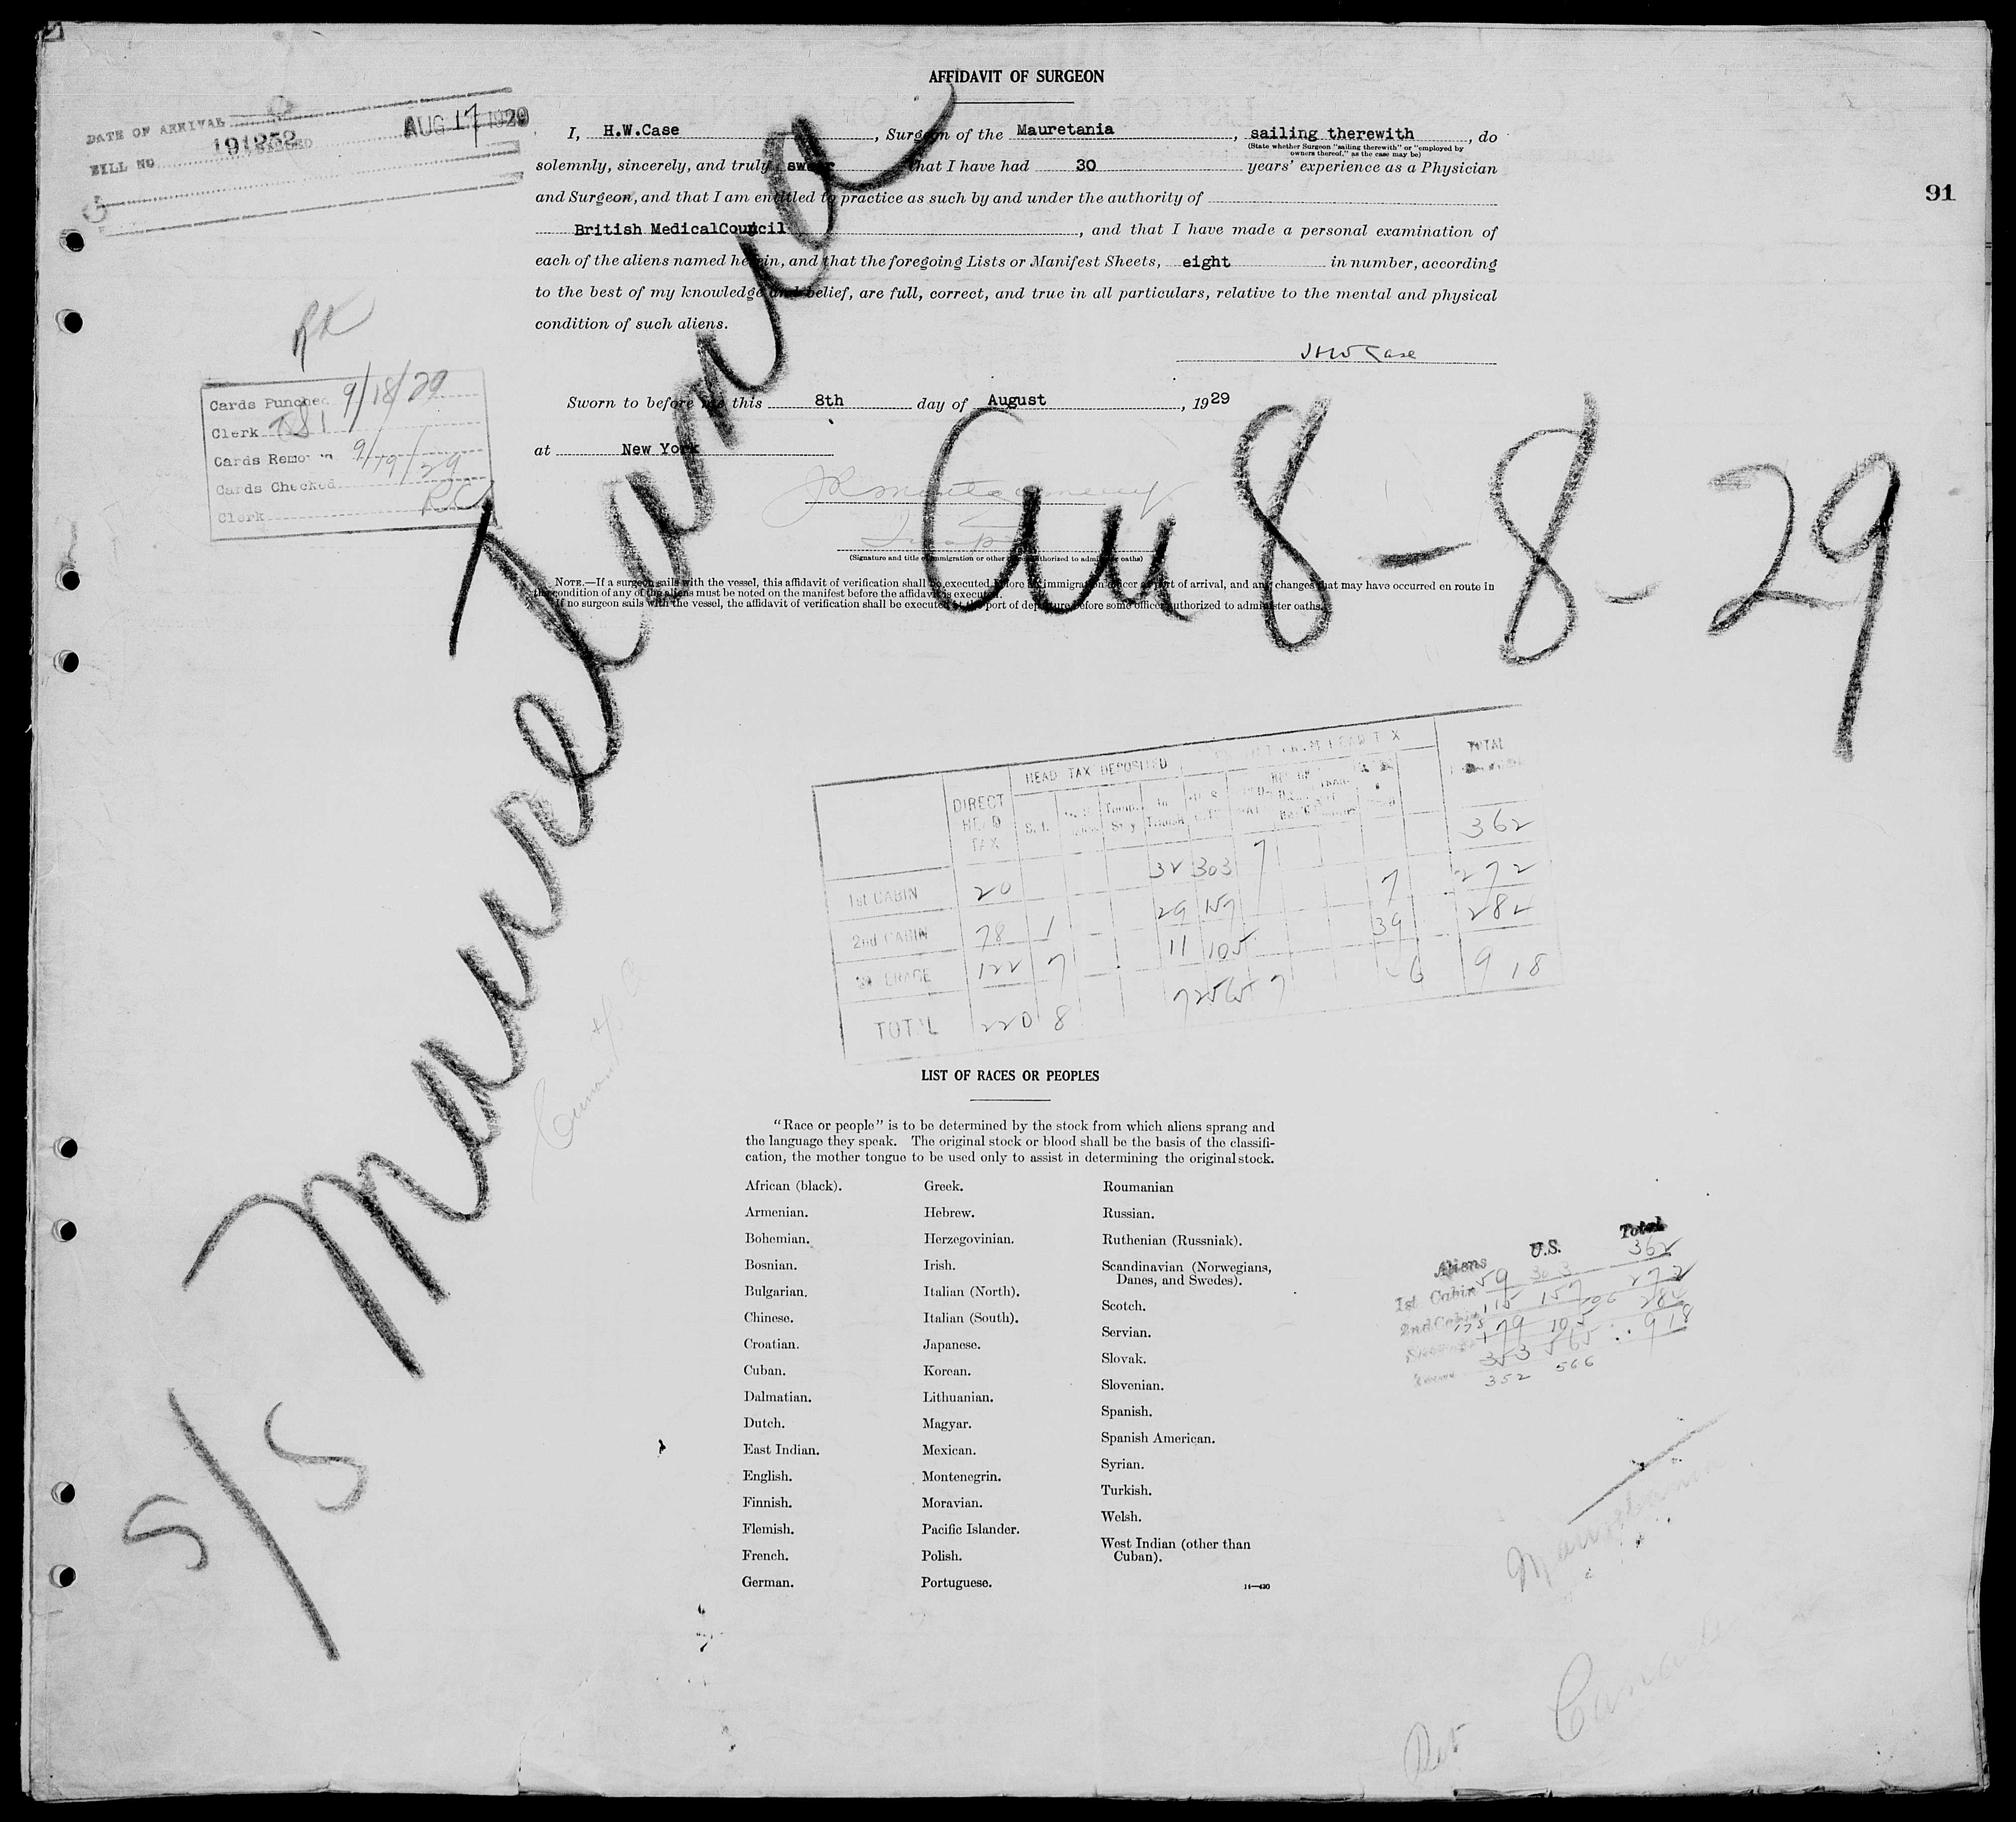 AFFIDAVIT OF SURGEON
DATE OF ARRIVAL
BILL NO 191252
AUG 17 1929
91
I, H.W.Case, Surgeon of the Mauretania, sailing therewith, do
(State whether Surgeon "sailing therewith" or "employed by
owners thereof," as the case may be)
solemnly, sincerely, and truly swear that I have had 30 years' experience as a Physician
and Surgeon, and that I am entitled to practice as such by and under the authority of
British MedicalCouncil, and that I have made a personal examination of
each of the aliens named herein, and that the foregoing Lists or Manifest Sheets, eight in number, according
to the best of my knowledge and belief, are full, correct, and true in all particulars, relative to the mental and physical
condition of such aliens.
HW Case
Sworn to before me this 8th day of August, 1929
at New York
(Signature and title of immigration or other officer authorized to administer oaths)
NOTE.—If a surgeon sails with the vessel, this affidavit of verification shall be executed before an immigration officer at port of arrival, and any changes that may have occurred en route in
the condition of any of the aliens must be noted on the manifest before the affidavit is executed.
If no surgeon sails with the vessel, the affidavit of verification shall be executed at the port of departure before some officer authorized to administer oaths.
RK
Cards Punched 9/18/29
Clerk
Cards Removed 9/19/29
Cards Checked
Clerk RK
S/S Mauretania
Au 8-8-29
HEAD TAX DEPOSITED
DIRECT HEAD TAX
TOTAL
1st CABIN 20 32 303 7 362
2nd CABIN 78 1 29 157 7 272
STEERAGE 122 7 11 105 39 282
TOTAL 220 8 72 565 7 918
LIST OF RACES OR PEOPLES
"Race or people" is to be determined by the stock from which aliens sprang and
the language they speak. The original stock or blood shall be the basis of the classifi-
cation, the mother tongue to be used only to assist in determining the original stock.
African (black).
Armenian.
Bohemian.
Bosnian.
Bulgarian.
Chinese.
Croatian.
Cuban.
Dalmatian.
Dutch.
East Indian.
English.
Finnish.
Flemish.
French.
German.
Greek.
Hebrew.
Herzegovinian.
Irish.
Italian (North).
Italian (South).
Japanese.
Korean.
Lithuanian.
Magyar.
Mexican.
Montenegrin.
Moravian.
Pacific Islander.
Polish.
Portuguese.
Roumanian
Russian.
Ruthenian (Russniak).
Scandinavian (Norwegians,
Danes, and Swedes).
Scotch.
Servian.
Slovak.
Slovenian.
Spanish.
Spanish American.
Syrian.
Turkish.
Welsh.
West Indian (other than
Cuban).
14—430
Aliens U.S. Total
1st Cabin 59 303 362
2nd Cabin 115 157 272
179 105 282
353 565 918
352 566
Mauretania